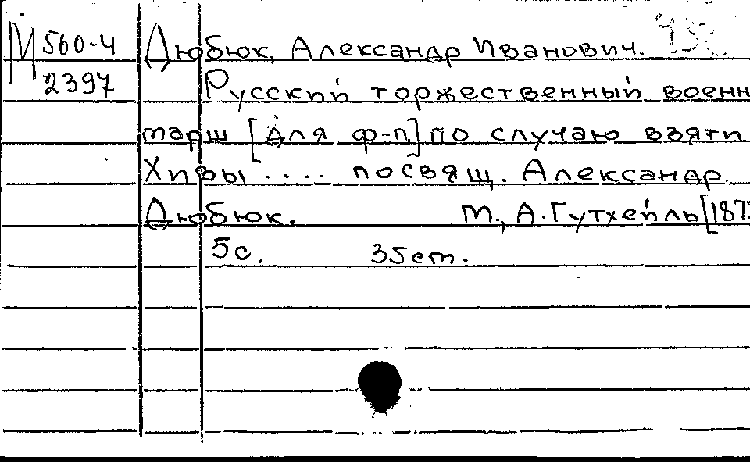 М 560-4 Дюбюк, Александр Иванович.
2397 Русский торжественный воен
марш [для ф-п] по случаю взяти
Хивы .... посвящ. Александр
Дюбюк. М., А. Гутхейль [187
5 с. 35 cm.